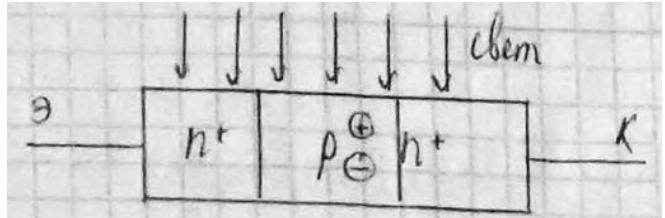 свет
Э
n⁺ p ⊕ ⊖ n⁺
К